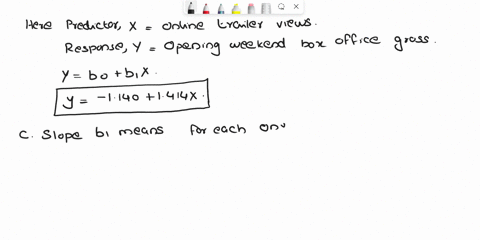 Here Predictor, X = online trailer views.
Response, Y = Opening weekend box office gross.
Y = b0 + b1X.
y = -1.140 + 1.414X.
C. Slope b1 means for each